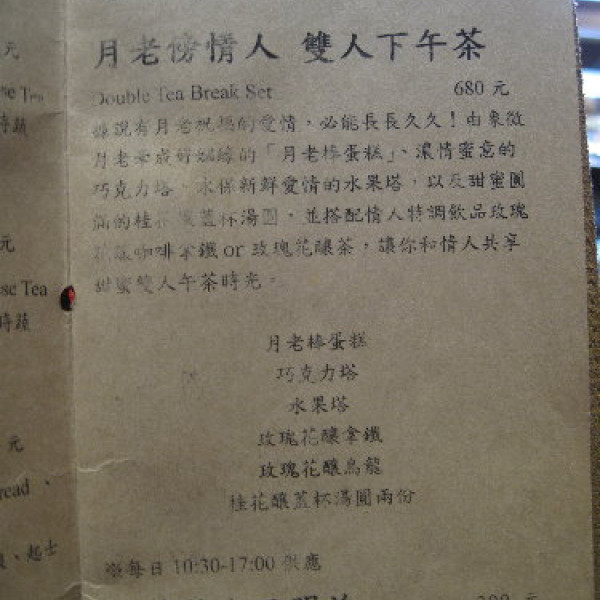 月老傍情人 雙人下午茶
Double Tea Break Set 680 元
據說有月老祝福的愛情，必能長長久久！由象徵
月老牽成好姻緣的「月老棒蛋糕」、濃情蜜意的
巧克力塔、永保新鮮愛情的水果塔，以及甜蜜圓
滿的桂花釀蓋杯湯圓，並搭配情人特調飲品玫瑰
花釀咖啡拿鐵 or 玫瑰花釀茶，讓你和情人共享
甜蜜雙人午茶時光。
月老棒蛋糕
巧克力塔
水果塔
玫瑰花釀拿鐵
玫瑰花釀烏龍
桂花釀蓋杯湯圓兩份
※每日 10:30-17:00 供應
元
時蔬
元
se Tea
時蔬
元
read、
、起士